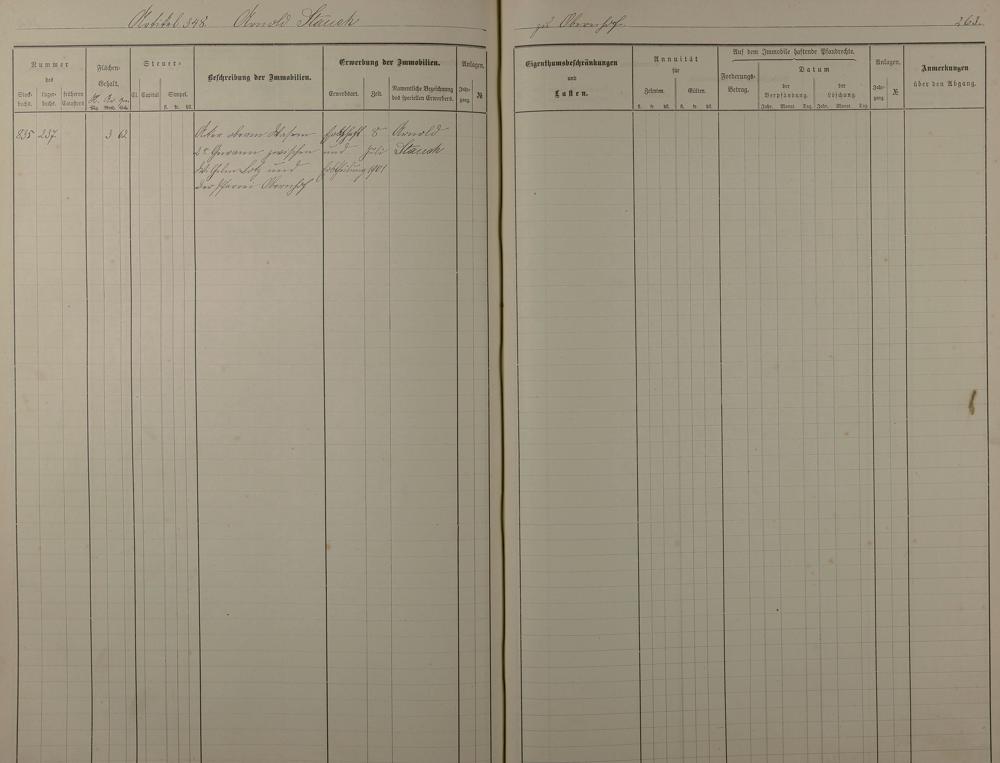 Artikel 348. Arnold Stauch
zu Obernhof.
263.
Nummer
des
Stock-
buchs.
Lager-
buchs.
früheren
Catasters
Flächen-
Gehalt.
Steuer-
Cl. Capital Simpel.
fl. kr. hl.
Beschreibung der Immobilien.
Erwerbung der Immobilien.
Erwerbsart. Zeit.
Namentliche Bezeichnung
des speziellen Erwerbers.
Anlagen.
Jahr-
gang.
№
Eigenthumsbeschränkungen
und
Lasten.
Annuität
für
Zehnten. Gülten.
fl. kr. hl. fl. kr. hl.
Auf dem Immobile haftende Pfandrechte.
Forderungs-
Betrag.
Datum
der
Verpfändung.
der
Löschung.
Jahr. Monat. Tag. Jahr. Monat. Tag.
Anlagen.
Jahr-
gang.
№
Anmerkungen
über den Abgang.
835 237 3 62
Acker oberm
2r Gewann zwischen
Wilhelm Lotz und
der Pfarrei Obernhof
Erbschaft
und
Erbtheilung
8
Juli
1901
Arnold
Stauch